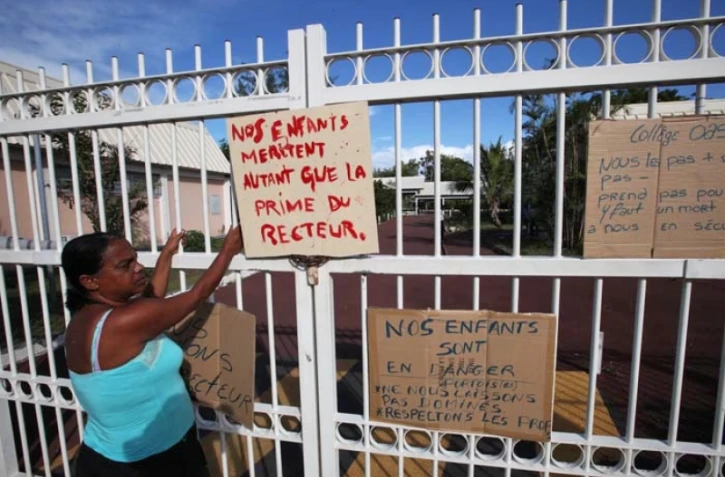 NOS ENFANTS
MERITENT
AUTANT QUE LA
PRIME DU
RECTEUR.
Collège
Nous le
pas
prend pas pou
Y faut un mort
a nous en sécu
RECTEUR
NOS ENFANTS
SONT
EN DANGER
*NE NOUS LAISSONS
PAS DOMINÉS
*RESPECTONS LES PROF